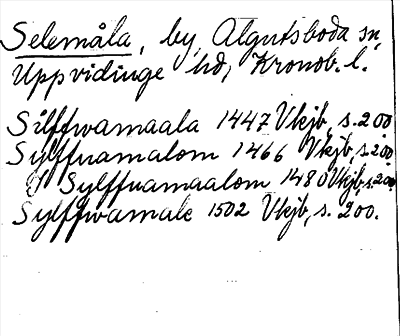 Selemåla, by, Algutsboda sn,
Uppvidinge hd, Kronob. l.
Silffwamaala 1447 Vkjb, s. 200
Sylffuamalom 1466 Vkjb, s. 200
J Sylffuamaalom 1480 Vkjb, s. 200
Sylffwamale 1502 Vkjb, s. 200.